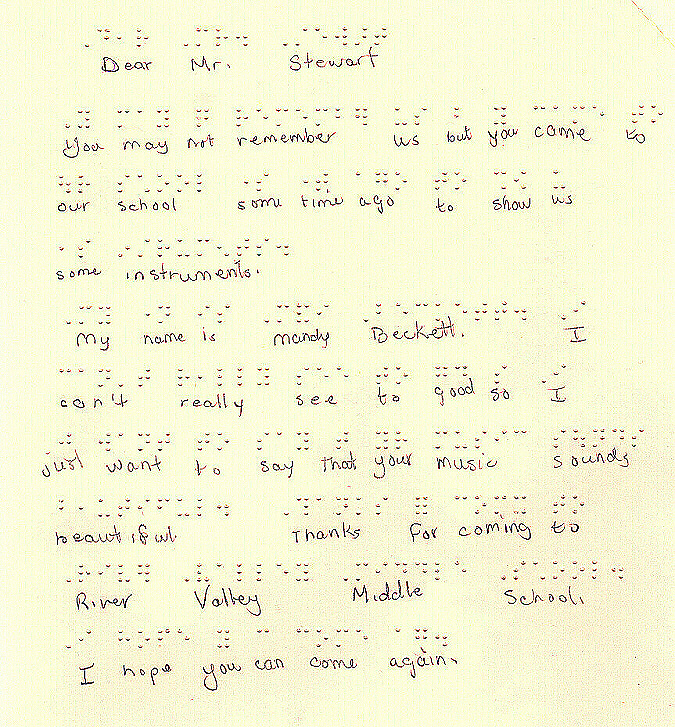 Dear Mr. Stewart
You may not remember us but you came to
our school some time ago to show us
some instruments.
My name is Mandy Beckett. I
can't really see to good so I
just want to say that your music sounds
beautiful. Thanks for coming to
River Valley Middle School.
I hope you can come again.